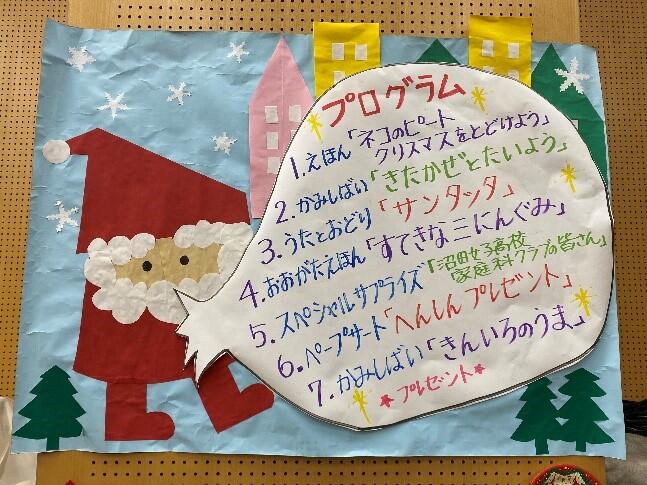 プログラム
1. えほん「ネコのピート
クリスマスをとどけよう」
2. かみしばい「きたかぜとたいよう」
3. うたとおどり「サンタッタ」
4. おおがたえほん「すてきな三にんぐみ」
5. スペシャルサプライズ「沼田女子高校
家庭科クラブの皆さん」
6. ペープサート「へんしんプレゼント」
7. かみしばい「きんいろのうま」
*プレゼント*